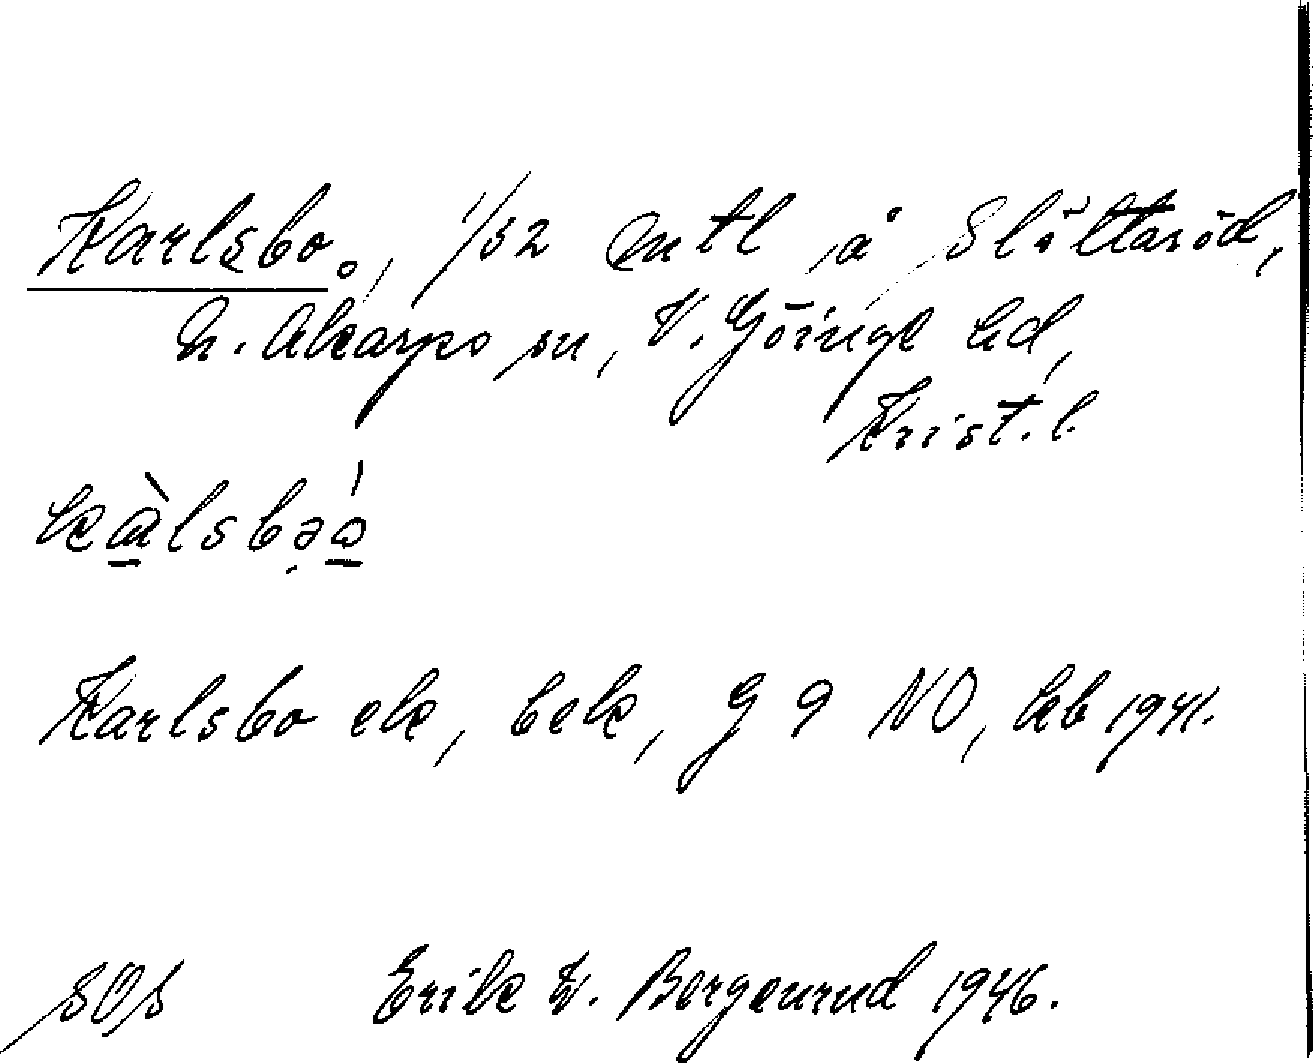 Karlsbo, 1/32 mtl å Slättaröd,
N. Åkarps sn, V. Göinge hd,
Krist. l.
kàlsbəó
Karlsbo ek, bek, G 9 NO, hb 1941.
SOS Erik W. Bergenrud 1946.